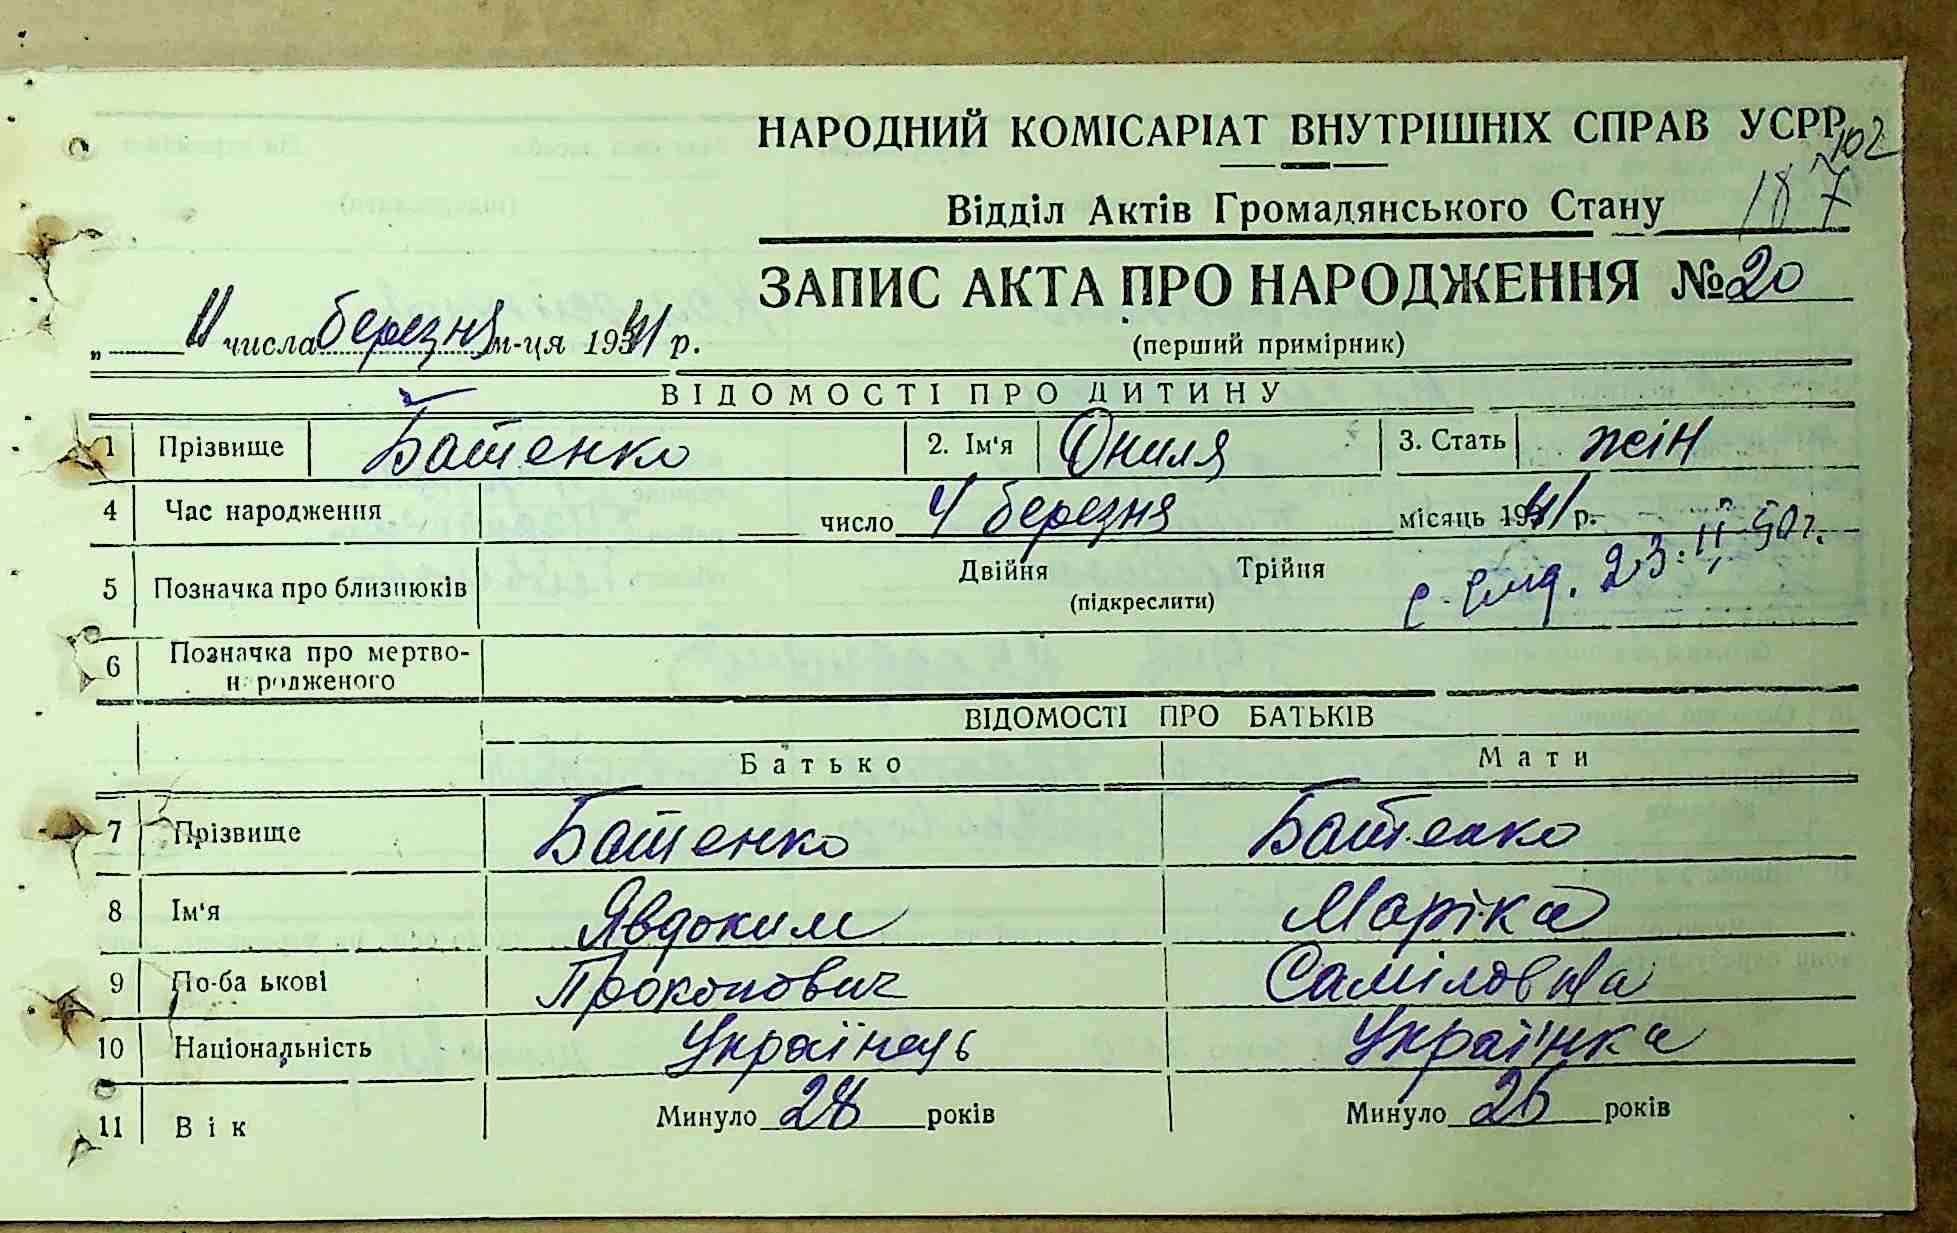 НАРОДНИЙ КОМІСАРІАТ ВНУТРІШНІХ СПРАВ УСРР
102
Відділ Актів Громадянського Стану 187
ЗАПИС АКТА ПРО НАРОДЖЕННЯ №20
„ 11 числа березня м-ця 1941 р.
(перший примірник)
ВІДОМОСТІ ПРО ДИТИНУ
1 Прізвище Батенко 2. Ім'я Ониля 3. Стать жін
4 Час народження число 4 березня місяць 1941 р.
5 Позначка про близнюків Двійня Трійня
(підкреслити)
23.II.90г.
6 Позначка про мертво-
н родженого
ВІДОМОСТІ ПРО БАТЬКІВ
Батько Мати
7 Прізвище Батенко Батенко
8 Ім'я Явдоким Маріка
9 По-ба ькові Прокопович Саміловна
10 Національність Українець Українка
11 Вік Минуло 28 років Минуло 26 років